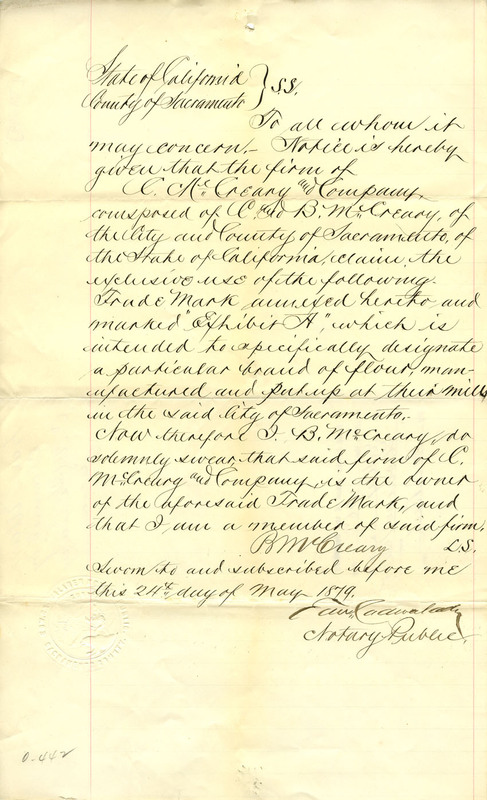 State of California } S.S.
County of Sacramento
To all whom it
may concern. Notice is hereby
given that the firm of
C. McCreary and Company,
comsposed of C. and B. McCreary, of
the City and County of Sacramento, of
the State of California, claim the
exclusive use of the following
Trade Mark, annexed hereto and
marked "Exhibit A", which is
intended to specifically designate
a particular brand of flour, man-
ufactured and put up at their mills
in the said City of Sacramento.
Now therefore I. B. McCreary, do
solemnly swear, that said firm of C.
McCreary and Company, is the owner
of the aforesaid Trade Mark, and
that I am a member of said firm.
B McCreary L.S.
Sworn to and subscribed before me
this 24th day of May 1879.
Edw. Cadwalader
Notary Public.
0-442